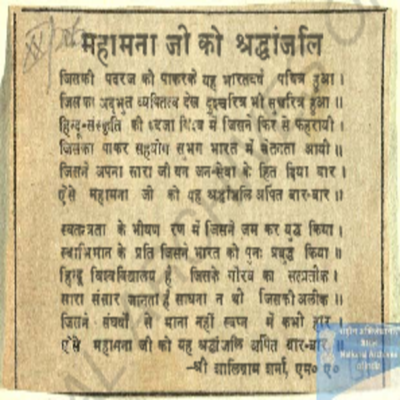 महामना जी को श्रद्धांजलि
जिसकी पदरज को पाकरके यह भारतवर्ष पवित्र हुआ ।
जिसका अद्भुत व्यक्तित्व देख दुश्चरित्र भी सच्चरित्र हुआ ॥
हिन्दू-संस्कृति की ध्वजा विश्व में जिसने फिर से फहरायी ।
जिसका पाकर सहयोग सुभग भारत में चेतनता आयी ॥
जिसने अपना सारा जीवन जन-सेवा के हित दिया वार ।
ऐसे महामना जी को यह श्रद्धांजलि अर्पित बार-बार ॥
स्वतन्त्रता के भीषण रण में जिसने जम कर युद्ध किया ।
स्वाभिमान के प्रति जिसने भारत को पुनः प्रबुद्ध किया ॥
हिन्दू विश्वविद्यालय है जिसके गौरव का सत्प्रतीक ।
सारा संसार जानता है साधना न थी जिसकी अलीक ॥
जिसने संघर्षों से माना नहीं स्वप्न में कभी हार ।
ऐसे महामना जी को यह श्रद्धांजलि अर्पित बार-बार ॥
-श्री शालिग्राम शर्मा, एम० ए०